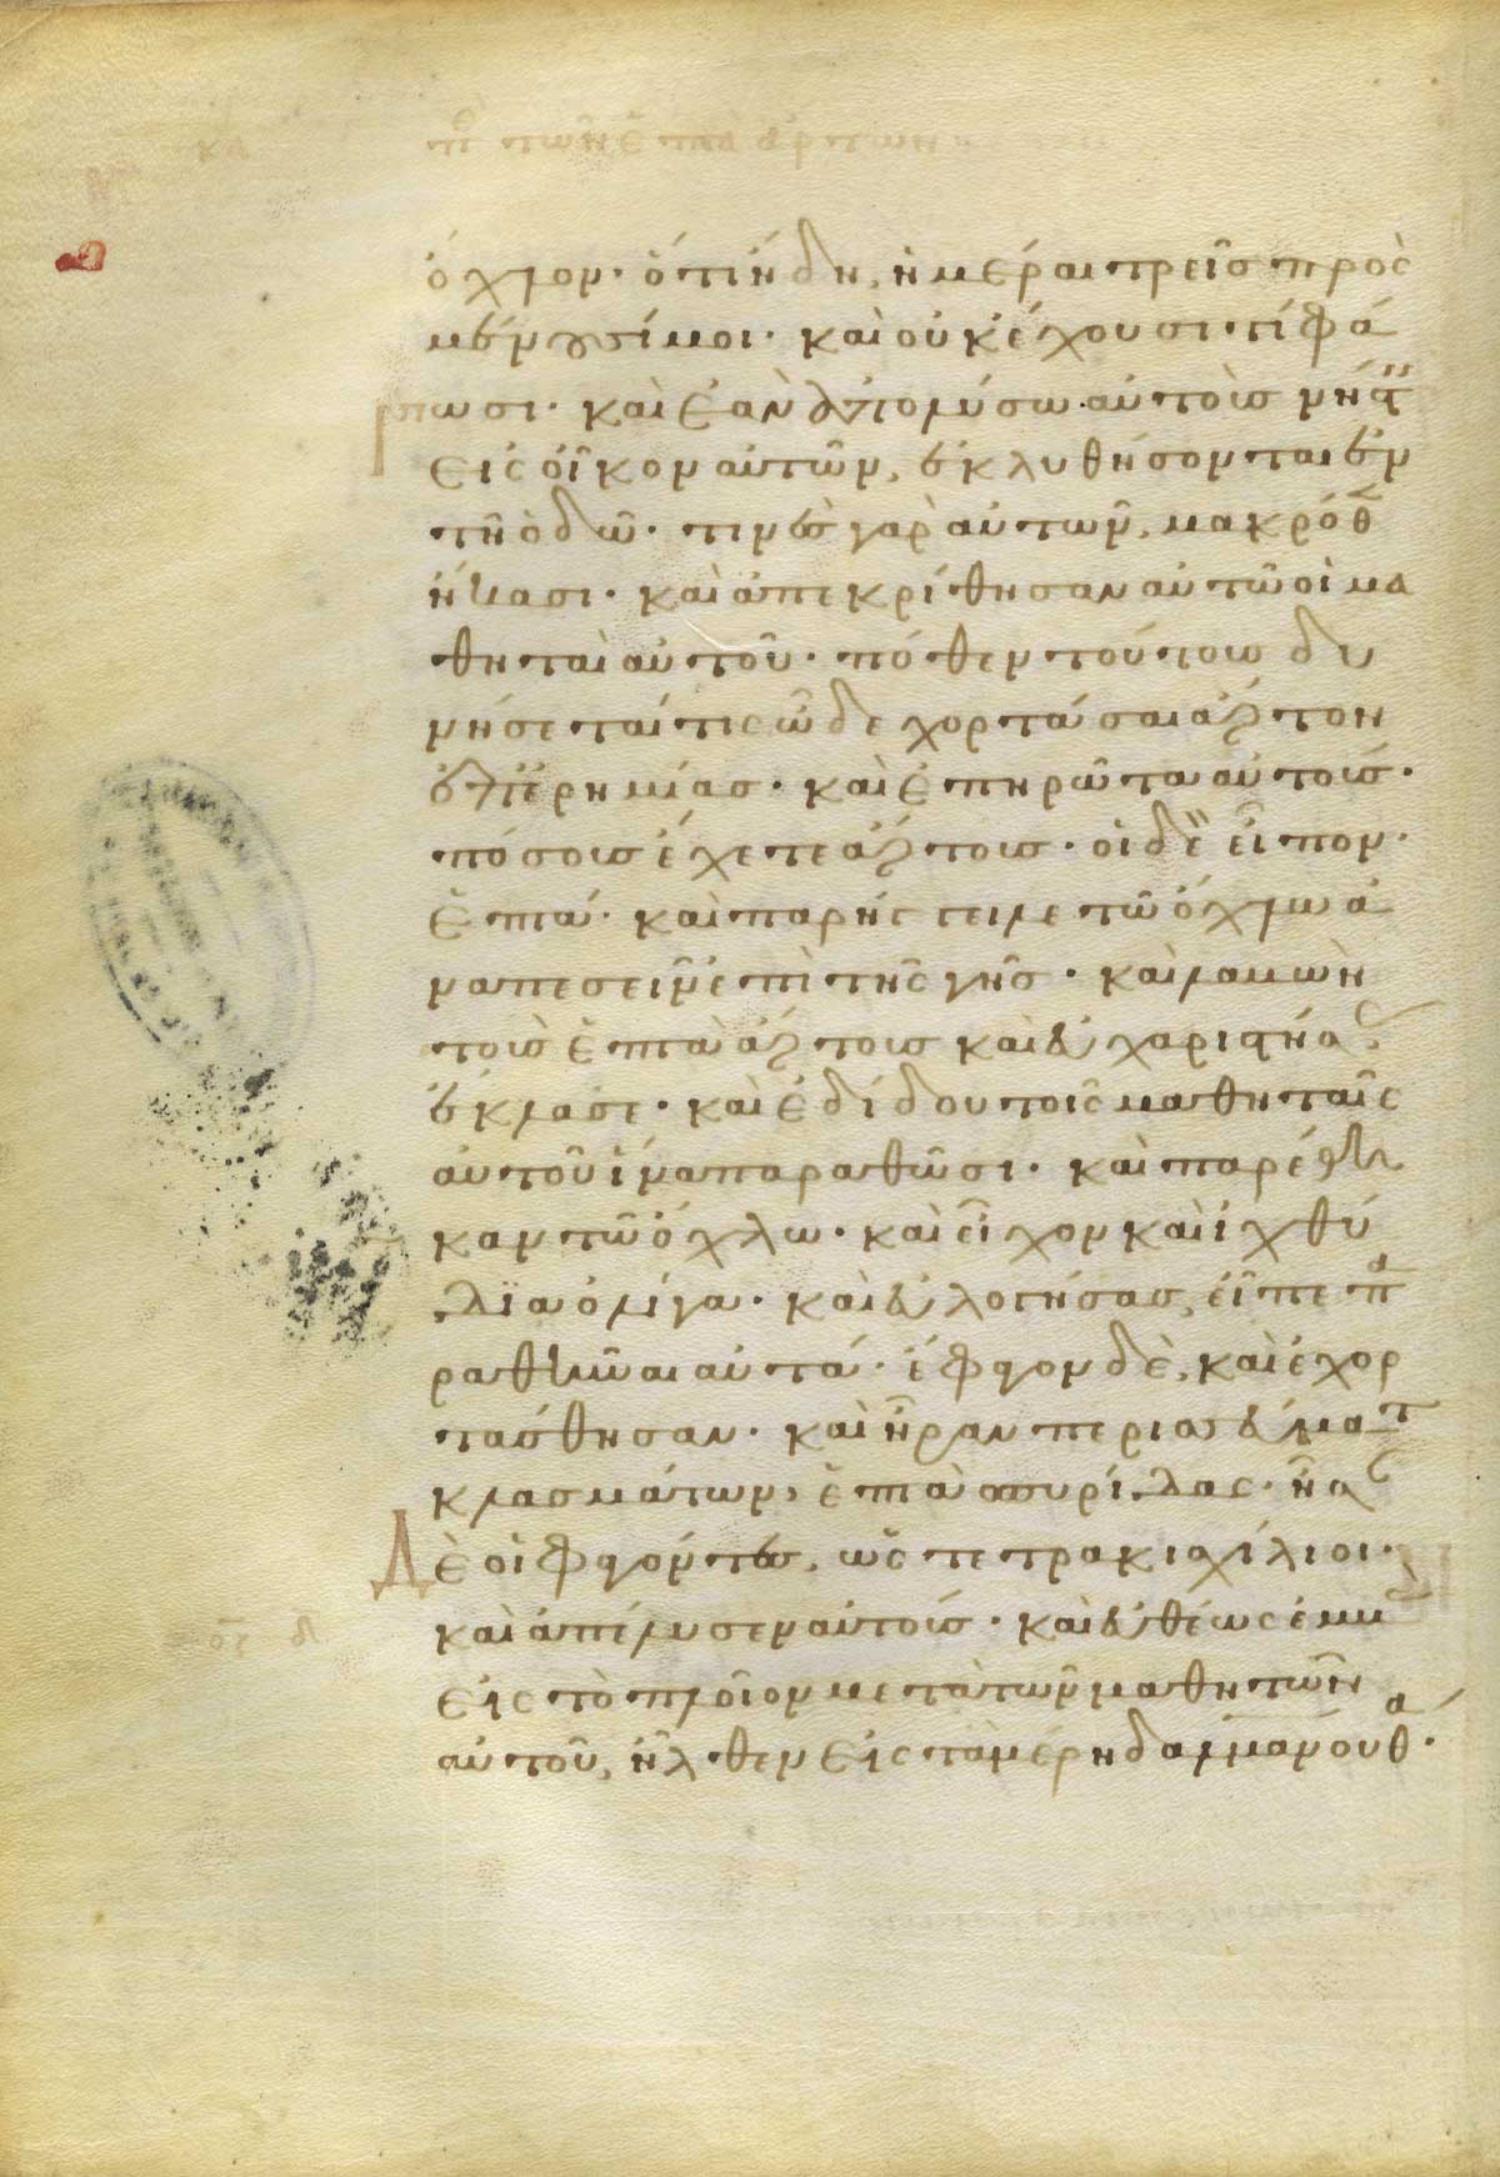 κα
πε τῶν ἑπτὰ ἄρτων
ὄχλον· ὅτι ἤδη, ἡμέραι τρεῖς προσ
μένουσί μοι· καὶ οὐκ ἔχουσι τί φά
γωσι· καὶ ἐὰν ἀπολύσω αὐτοὺς νήστ
εἰς οἶκον αὐτῶν, ἐκλυθήσονται ἐν
τῇ ὁδῶ· τινὲς γὰρ αὐτῶν, μακρόθ
ἥκασι· καὶ ἀπεκρίθησαν αὐτῶ οἱ μα
θηταὶ αὐτοῦ· πόθεν τούτους δυ
νήσεταί τις ὧδε χορτάσαι ἄρτων
ἐπ ἐρημίας· καὶ ἐπηρώτα αὐτούς·
πόσους ἔχετε ἄρτους· οἱ δὲ εἶπον·
ἑπτά· καὶ παρήγγειλε τῶ ὄχλω ἀ
ναπεσεῖν ἐπὶ τῆς γῆς· καὶ λαβὼν
τοὺς ἑπτὰ ἄρτους καὶ εὐχαριστήσας,
ἔκλασε· καὶ ἐδίδου τοῖς μαθηταῖς
αὐτοῦ ἵνα παραθῶσι· καὶ παρέθη
καν τῶ ὄχλω· καὶ εἶχον καὶ ἰχθύ
δια ὀλίγα· καὶ εὐλογήσας, εἶπε πα
ραθῆναι αὐτά· ἔφαγον δὲ, καὶ ἐχορ
τάσθησαν· καὶ ἦραν περισσεύματ
κλασμάτων, ἑπτὰ σπυρίδας· ἦσ
Δὲ οἱ φαγόντες, ὡς τετρακισχίλιοι·
καὶ ἀπέλυσεν αὐτούς· καὶ εὐθέως ἐμβ
εἰς τὸ πλοῖον μετὰ τῶν μαθητῶν
αὐτοῦ, ἦλθεν εἰς τὰ μέρη δαλμανουθά·